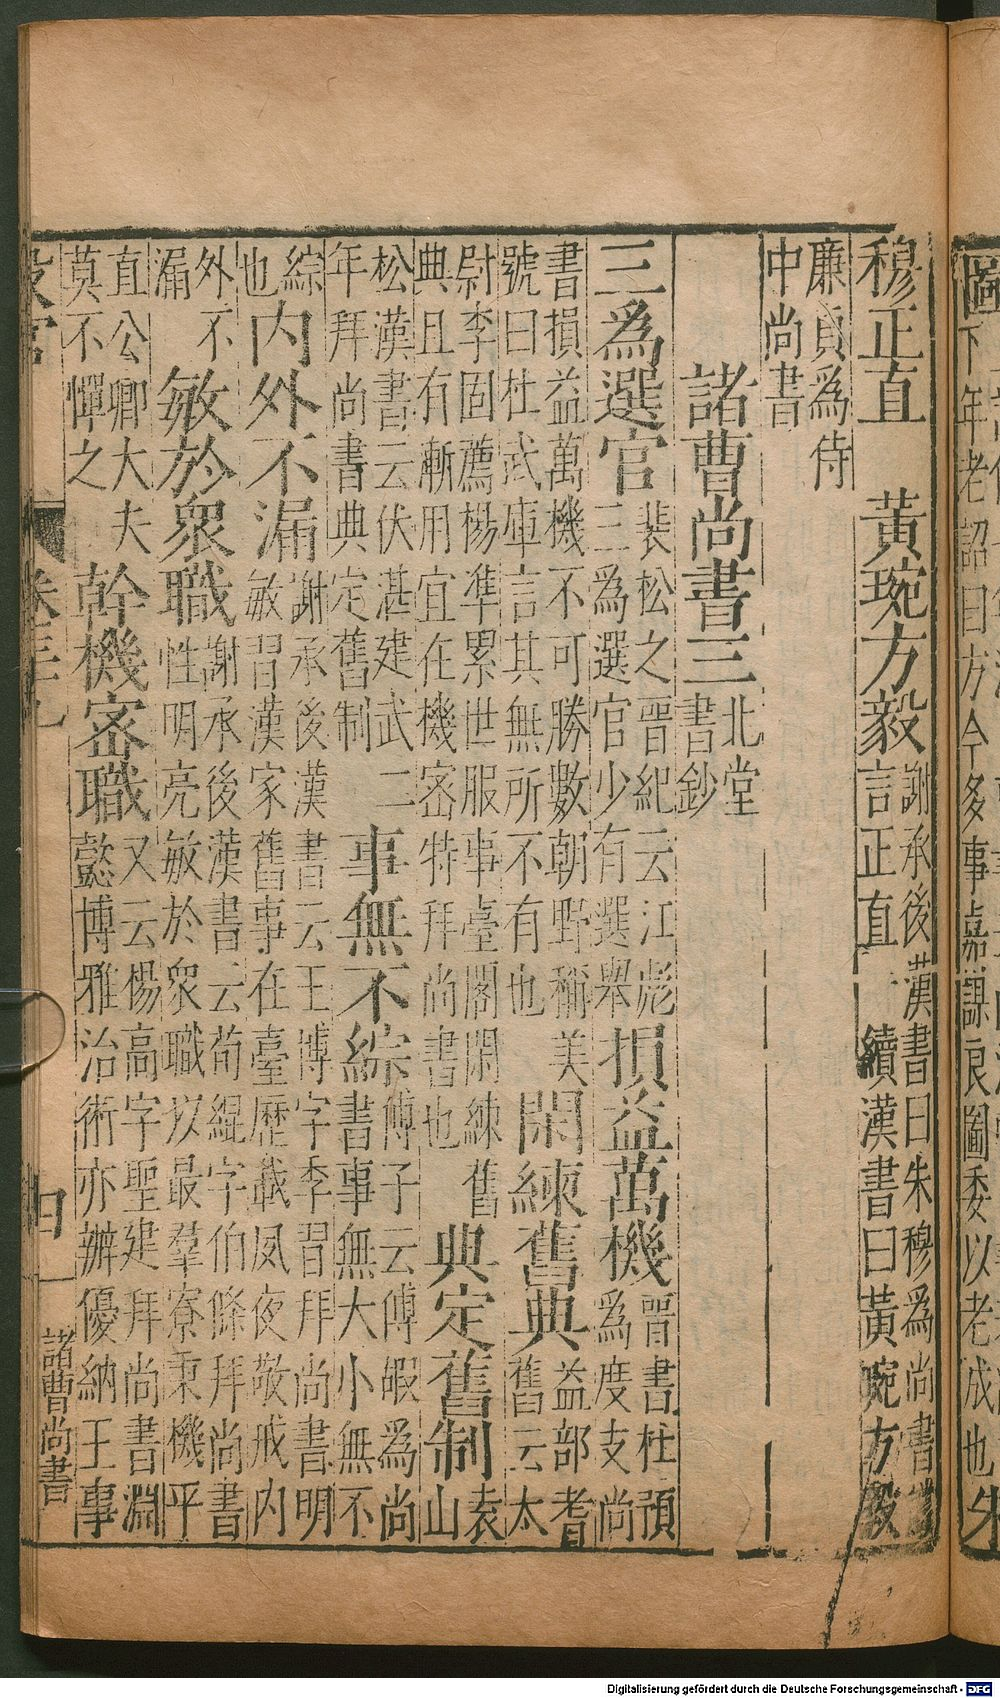 圖下年老詔曰方今多事嘉謀良圖委以老成也朱
穆正直 黃琬方毅 謝承後漢書曰朱穆為尚書
言正直 續漢書曰黃琬方毅
廉貞為侍
中尚書
諸曹尚書三 北堂
書鈔
三爲選官 裴松之晉紀云江彪
三為選官少有選舉 損益萬機 晉書杜預
為度支尚
書損益萬機不可勝數朝野稱美
號曰杜武庫言其無所不有也 閑練舊典 益部耆
舊云太
尉李固薦楊準累世服事臺閣閑練舊
典且有漸用宜在機密特拜尚書也 典定舊制 袁
山
松漢書云伏湛建武二
年拜尚書典定舊制 事無不綜 傅子云傅嘏為尚
書事無大小無不
綜
也 內外不漏 謝承後漢書云王博字季習拜尚書明
敏習漢家舊事在臺歷載夙夜敬戒内
外不
漏 敏於衆職 謝承後漢書云荀緄字伯條拜尚書
性明亮敏於衆職以最羣寮秉機平
直公卿大夫
莫不憚之 幹機密職 又云楊高字聖建拜尚書淵
懿博雅治術亦辦優納王事
諸曹尚書
Digitalisierung gefördert durch die Deutsche Forschungsgemeinschaft - DFG